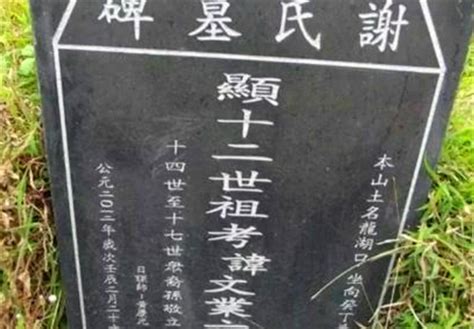 謝氏墓碑
本山土名龍湖口坐向癸丁
顯十二世祖考諱文業
十四世至十七世衆裔孫敬立
日課師
公元二〇一二年歲次壬辰二月二十